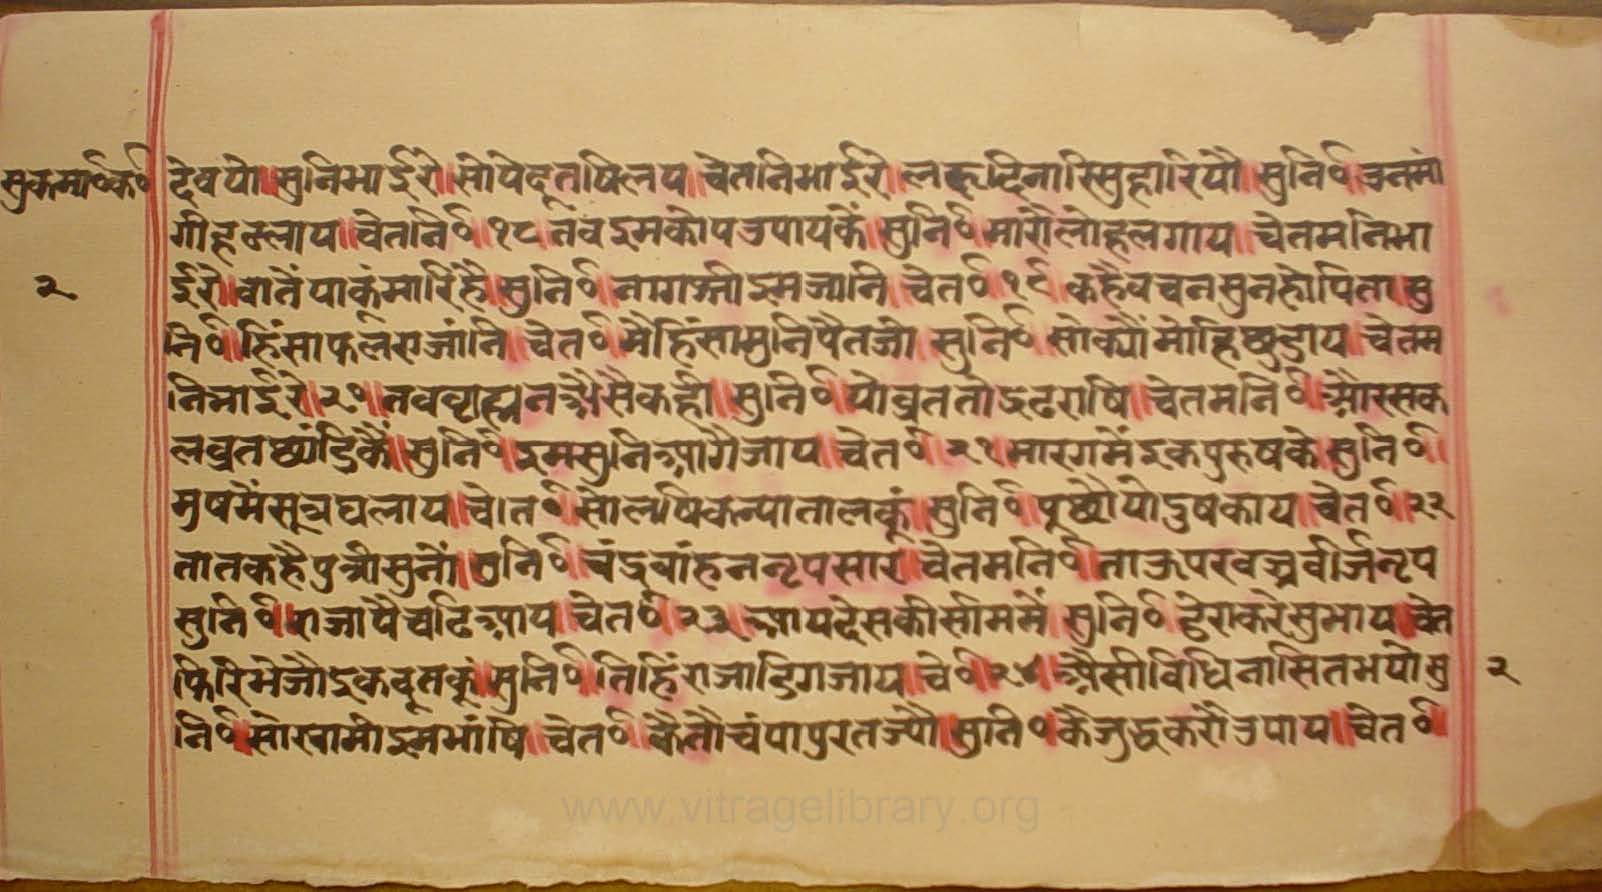 सुकमा॰क॰
देवपो॥सुनिभाईरे॥सोपेदूतषिलाय॥चेतनिभाईरे॥लकूटिनारिसुहारियौ॥सुनि॰॥उनमां
गीहूल्लाय॥चेतनि॰॥१८॥तव इमकोपउपायकैं॥सुनि॰॥मारौलोहलगाय॥चेतमनिभा
ईरे॥वातैंपाकंमारिहै॥सुनि॰॥नागन्नीइमजानि॥चेत॰॥१९॥कहैवचनसुनहोपिता॥सु
२
नि॰॥हिंसाफलराजांनि॥चेत॰॥मैहिंसामुनिपैतजी॥सुनि॰॥सोक्यौंमोहिछुडाय॥चेतम
निभाईरे॥२०॥तवव्राह्मनअैसैकही॥सुनि॰॥योव्रततोइढराषि॥चेतमनि॰॥औरसक
लव्रतछांडिकैं॥सुनि॰॥इमसुनिआगैजाय॥चेत॰॥२१॥मारगमैंइकपुरुषके॥सुनि॰॥
मुषमैंसूत्रघलाय॥चेत॰॥सोलषिकन्यातातकूं॥सुनि॰॥पूछ्यौयोदुषकाय॥चेत॰॥२२
तातकहैपुत्रीसुनौं॥सुनि॰॥चंद्रवांहननृपसार॥चेतमनि॰॥ताऊपरवज्रवीर्जनृप
सुनि॰॥राजापैचढिआय॥चेत॰॥२३॥आयदेसकीसीममैं॥सुनि॰॥डेराकरेसुभाय॥चेत
फिरिभेजौइकदूतकूं॥सुनि॰॥तिहिंराजाढिगजाय॥चे॰॥२४॥अैसीविधिनासितभयो॥सु
२
नि॰॥सोस्वामीइमभांषि॥चेत॰॥कैतौचंपापुरतज्यौ॥सुनि॰॥कैजुद्धकरौउपाय॥चेत॰॥
www.vitragelibrary.org